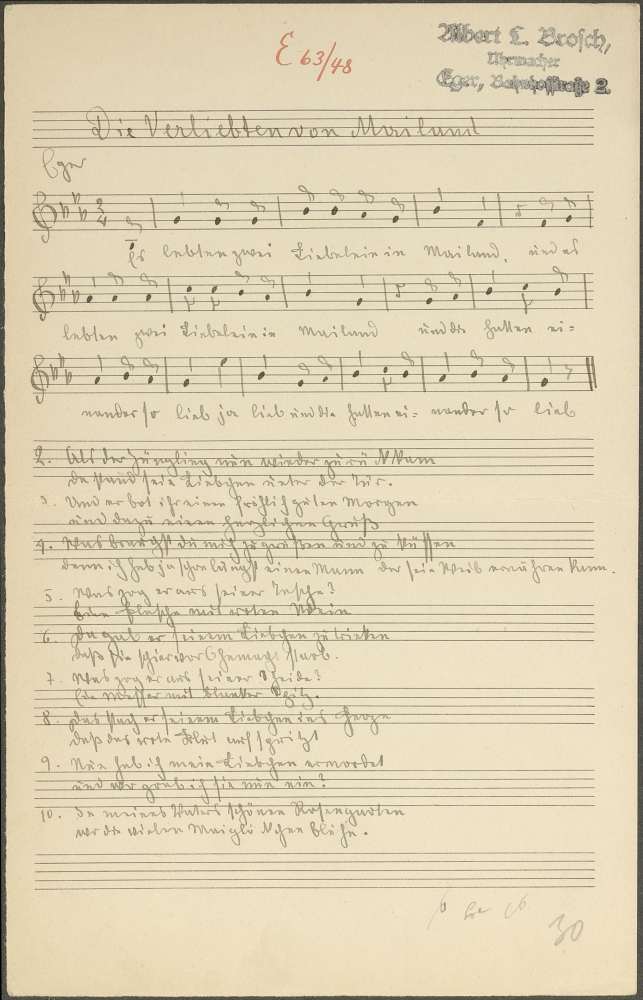 E 63/48
Albert C. Brosch,
Uhrmacher
Eger, Bahnhofstraße 2.
Die Verliebten von Mailand
Eger
Es lebten zwei Liebelein in Mailand, und es
lebten zwei Liebelein in Mailand und die hatten ei=
nander so lieb ja lieb und die hatten ei= nander so lieb
2. Als der Jüngling nun wieder zurü kkam
da stand sein Liebchen unter der Tür.
3. Und er bot ihr einen fröhlich guten Morgen
und dazu einen herzlichen Gruß
4. Was brauchst du mich zu grüßen und zu küssen
denn ich hab ja schon längst einen Mann der sein Weib ernähren kann.
5. Was zog er aus seiner Tasche?
Eine Flasche mit roten Wein
6. Da gab er seinem Liebchen zu trinken
daß sie schier vor Ohnmacht starb.
7. Was zog er aus seiner Scheide?
Ein Messer mit blanker Spitz.
8. Das stach er seinem Liebchen ins Herze
daß das rote Blut auf spritzt
9. Nun hab ich mein Liebchen ermordet
und wo grab ich sie nun ein?
10. In meines Vaters schönen Rosengarten
wo die vielen Maiglö kchen blühn.
30